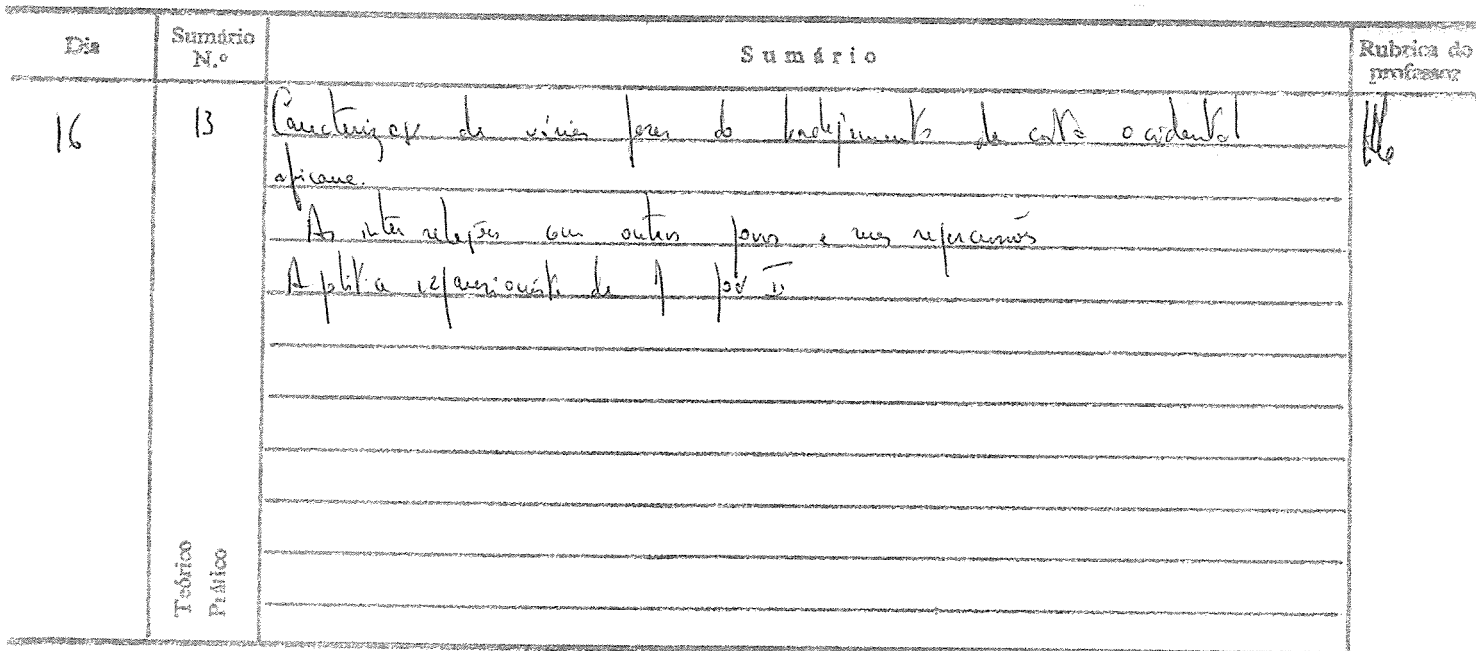 Dia
Sumário N.º
Sumário
Rubrica do professor
16
13
Caracterização de várias fases do da costa ocidental
africana.
As inter relações com outros povos e suas repercussões
A política expansionista de D. João II
Teórico
Prático